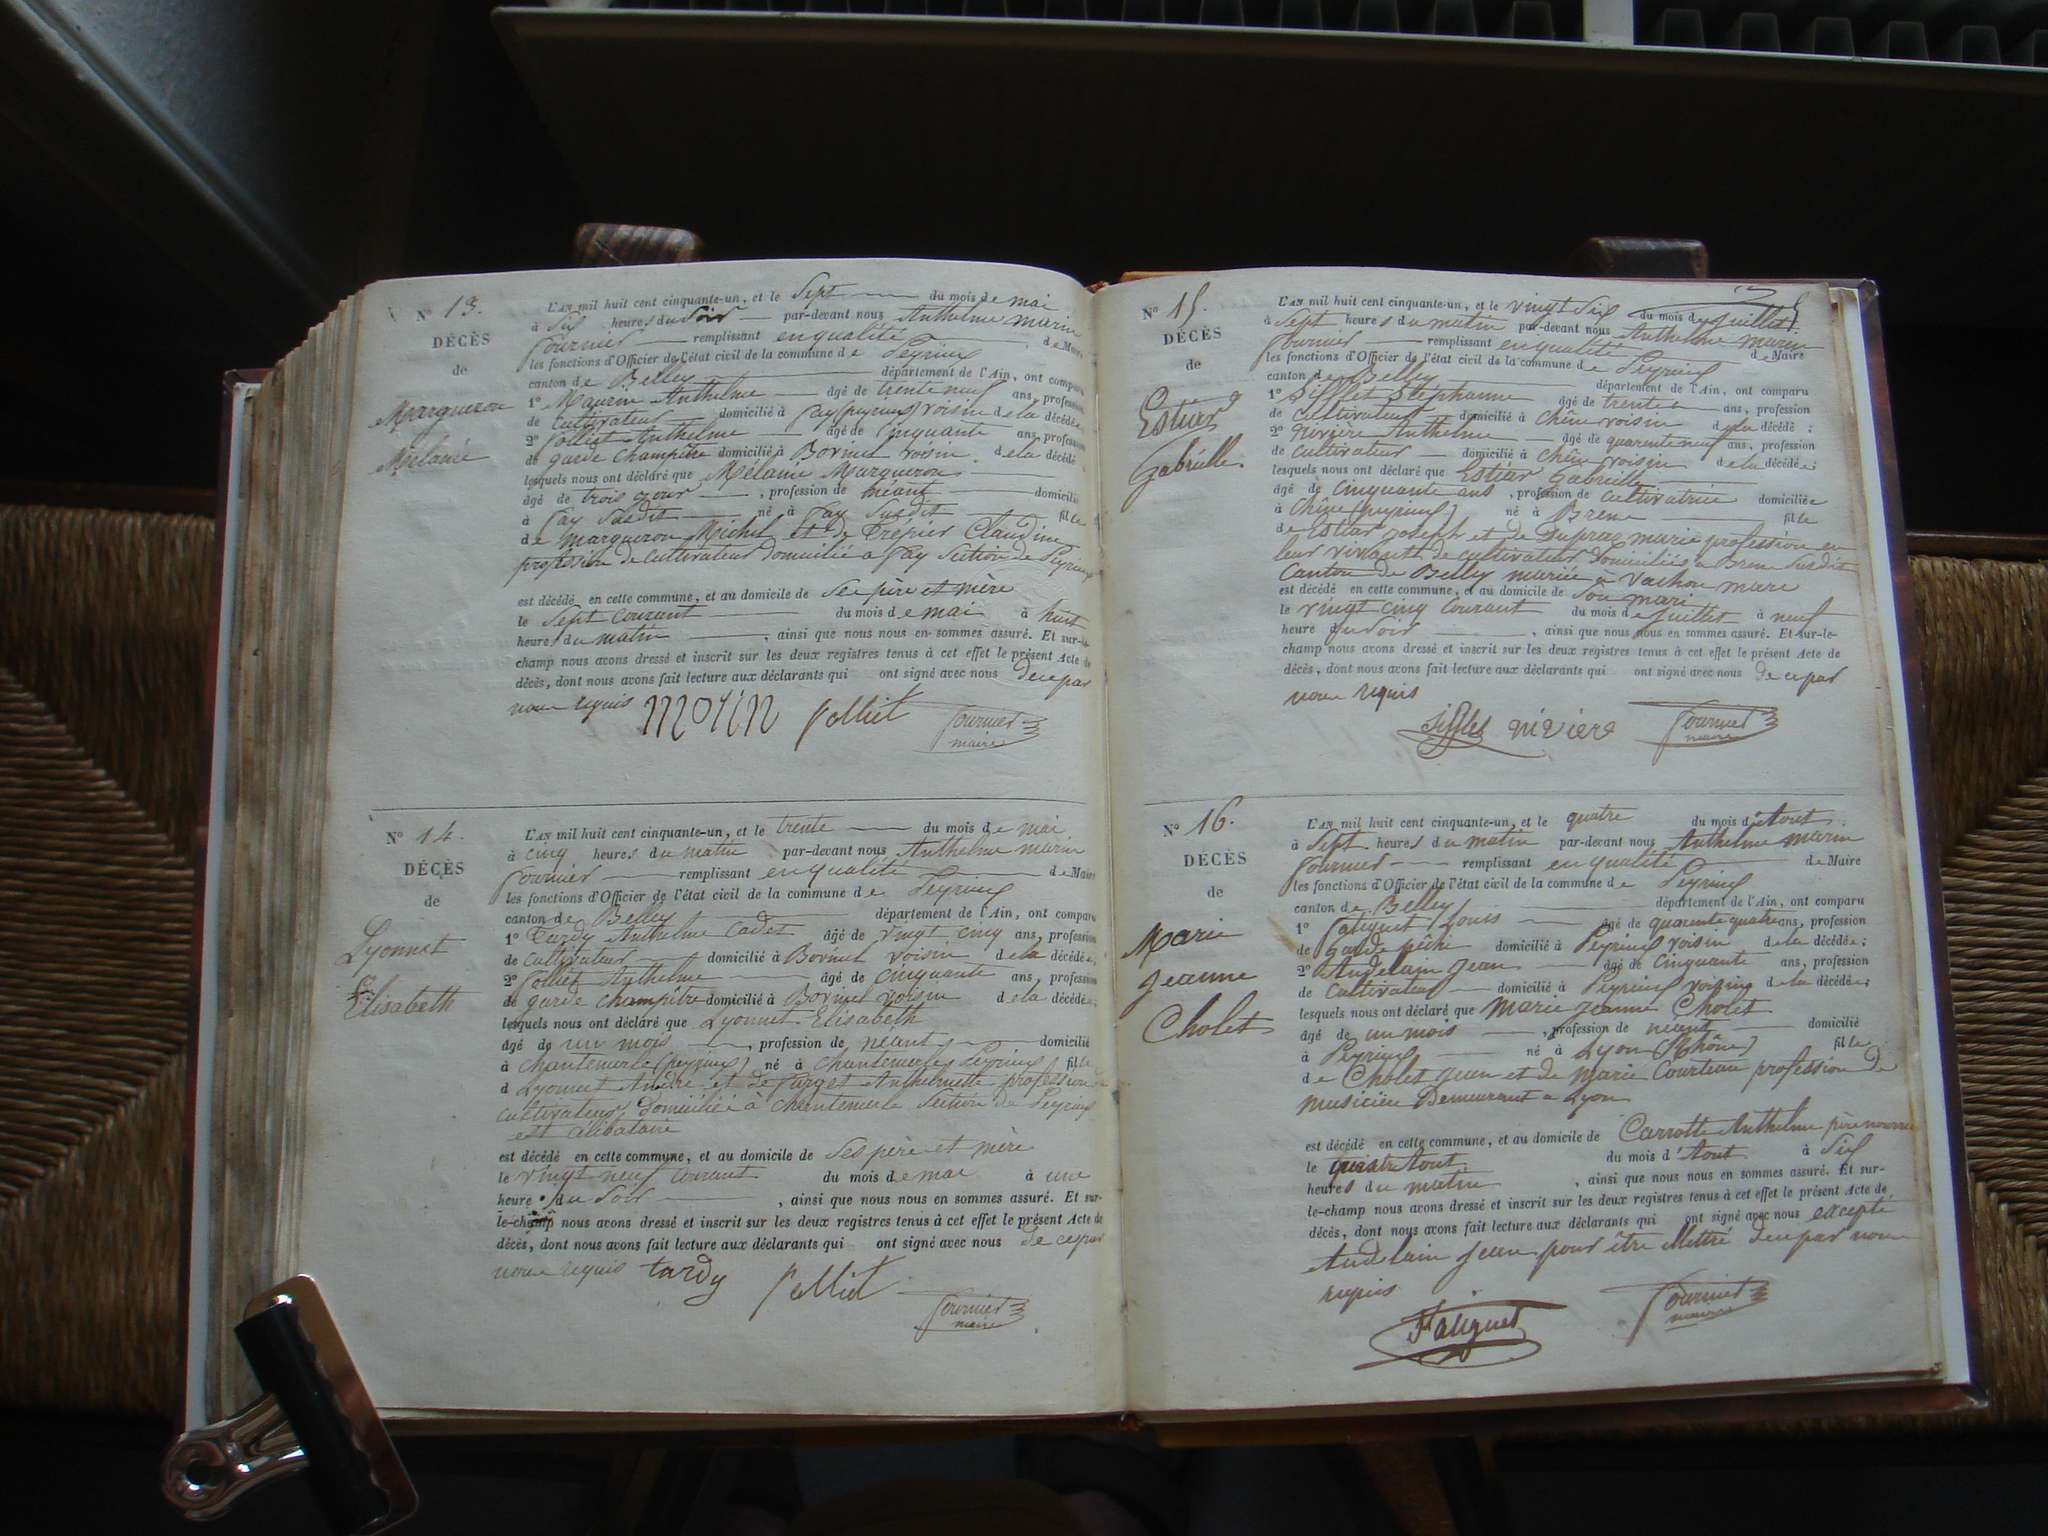 N° 13.
DÉCÈS
de
Margueron
Mélanie
L'AN mil huit cent cinquante-un, et le sept du mois de mai
à six heures du soir par-devant nous Anthelme marin
fournier remplissant en qualité de Maire
les fonctions d'Officier de l'état civil de la commune de Peyrieux
canton de Belley département de l'Ain, ont comparu
1° Anthelme âgé de trente neuf ans, profession
de cultivateur domicilié à fay (peyrieux) voisin de la décédée
2° Anthelme âgé de cinquante ans, profession
de garde champêtre domicilié à voisin de la décédé
lesquels nous ont déclaré que Mélanie Margueron
âgé de trois jour, profession de néant domicilié
à fay susdit né à fay susdit fille
de margueron Michel et de Trépier Claudine
profession de cultivateur domicilié a fay section de Peyrieux
est décédé en cette commune, et au domicile de ses père et mère
le sept courant du mois de mai à huit
heures du matin, ainsi que nous nous en sommes assuré. Et sur-le-
champ nous avons dressé et inscrit sur les deux registres tenus à cet effet le présent Acte de
décès, dont nous avons fait lecture aux déclarants qui ont signé avec nous de ce par
nous requis morin folliet fournier
maire
N° 14.
DÉCÈS
de
Lyonnet
Elisabeth
L'AN mil huit cent cinquante-un, et le trente du mois de mai
à cinq heures du matin par-devant nous Anthelme marin
fournier remplissant en qualité de Maire
les fonctions d'Officier de l'état civil de la commune de Peyrieux
canton de Belley département de l'Ain, ont comparu
1° Tardy Anthelme Cadet âgé de vingt cinq ans, profession
de cultivateur domicilié à voisin de la décédée,
2° folliet Anthelme âgé de cinquante ans, profession
de garde champêtre domicilié à voisin de la décédée;
lesquels nous ont déclaré que Lyonnet Elisabeth
âgé de un mois, profession de néant domicilié
à chantemerle (peyrieux) né à chantemerle (Peyrieux) fille
d Lyonnet André et de Anthelmette profession de
cultivateurs domiciliée à chantemerle section de Peyrieux
est célibataire
est décédé en cette commune, et au domicile de ses père et mère
le vingt neuf courant du mois de mai à une
heure du soir, ainsi que nous nous en sommes assuré. Et sur-
le-champ nous avons dressé et inscrit sur les deux registres tenus à cet effet le présent Acte de
décès, dont nous avons fait lecture aux déclarants qui ont signé avec nous de ce par
nous requis tardy folliet
fournier
maire
N° 15.
DÉCÈS
de
Estiar
Gabrielle
L'AN mil huit cent cinquante-un, et le vingt six du mois de juillet
à sept heures du matin par-devant nous Anthelme marin
fournier remplissant en qualité de Maire
les fonctions d'Officier de l'état civil de la commune de Peyrieux
canton de Belley département de l'Ain, ont comparu
1° Sifflet Stéphanne âgé de trente ans, profession
de cultivateur domicilié à chêne voisin de la décédé;
2° nivière Anthelme âgé de quarente neuf ans, profession
de cultivateur domicilié à chêne voisin de la décédée;
lesquels nous ont déclaré que Estiar Gabrielle
âgé de cinquante ans, profession de cultivatrice domiciliée
à chêne (peyrieux) né à Brens fille
de Estiar joseph et de Dupraz marie profession en
leur vivants de cultivateur domiciliés a Brens susdit
canton de Belley mariée a Vachon marc
est décédé en cette commune, et au domicile de son mari
le vingt cinq courant du mois de juillet à neuf
heure du soir, ainsi que nous nous en sommes assuré. Et sur-le-
champ nous avons dressé et inscrit sur les deux registres tenus à cet effet le présent Acte de
décès, dont nous avons fait lecture aux déclarants qui ont signé avec nous de ce par
nous requis
Sifflet nivière fournier
maire
N° 16.
DÉCÈS
de
Marie
jeanne
Cholet
L'AN mil huit cent cinquante-un, et le quatre du mois d'Aout
à Sept heures du matin par-devant nous Anthelme marin
fournier remplissant en qualité de Maire
les fonctions d'Officier de l'état civil de la commune de Peyrieux
canton de Belley département de l'Ain, ont comparu
1° Louis âgé de quarente quatre ans, profession
de garde pêche domicilié à Peyrieux voisin de la décédée;
2° Andelain jean âgé de cinquante ans, profession
de cultivateur domicilié à Peyrieux voisins de la décédée;
lesquels nous ont déclaré que Marie jeanne Cholet
âgé de un mois, profession de néant domicilié
à Peyrieux né à Lyon (Rhône) fille
de Cholet jean et de Marie Courteau profession de
musicien Demeurant a Lyon
est décédé en cette commune, et au domicile de Carrotte Anthelme père nourricier
le quatre Aout du mois d'Aout à six
heures du matin, ainsi que nous nous en sommes assuré. Et sur-
le-champ nous avons dressé et inscrit sur les deux registres tenus à cet effet le présent Acte de
décès, dont nous avons fait lecture aux déclarants qui ont signé avec nous excepté
Andelain jean pour être illettré de ce par nous
requis
fournier
maire